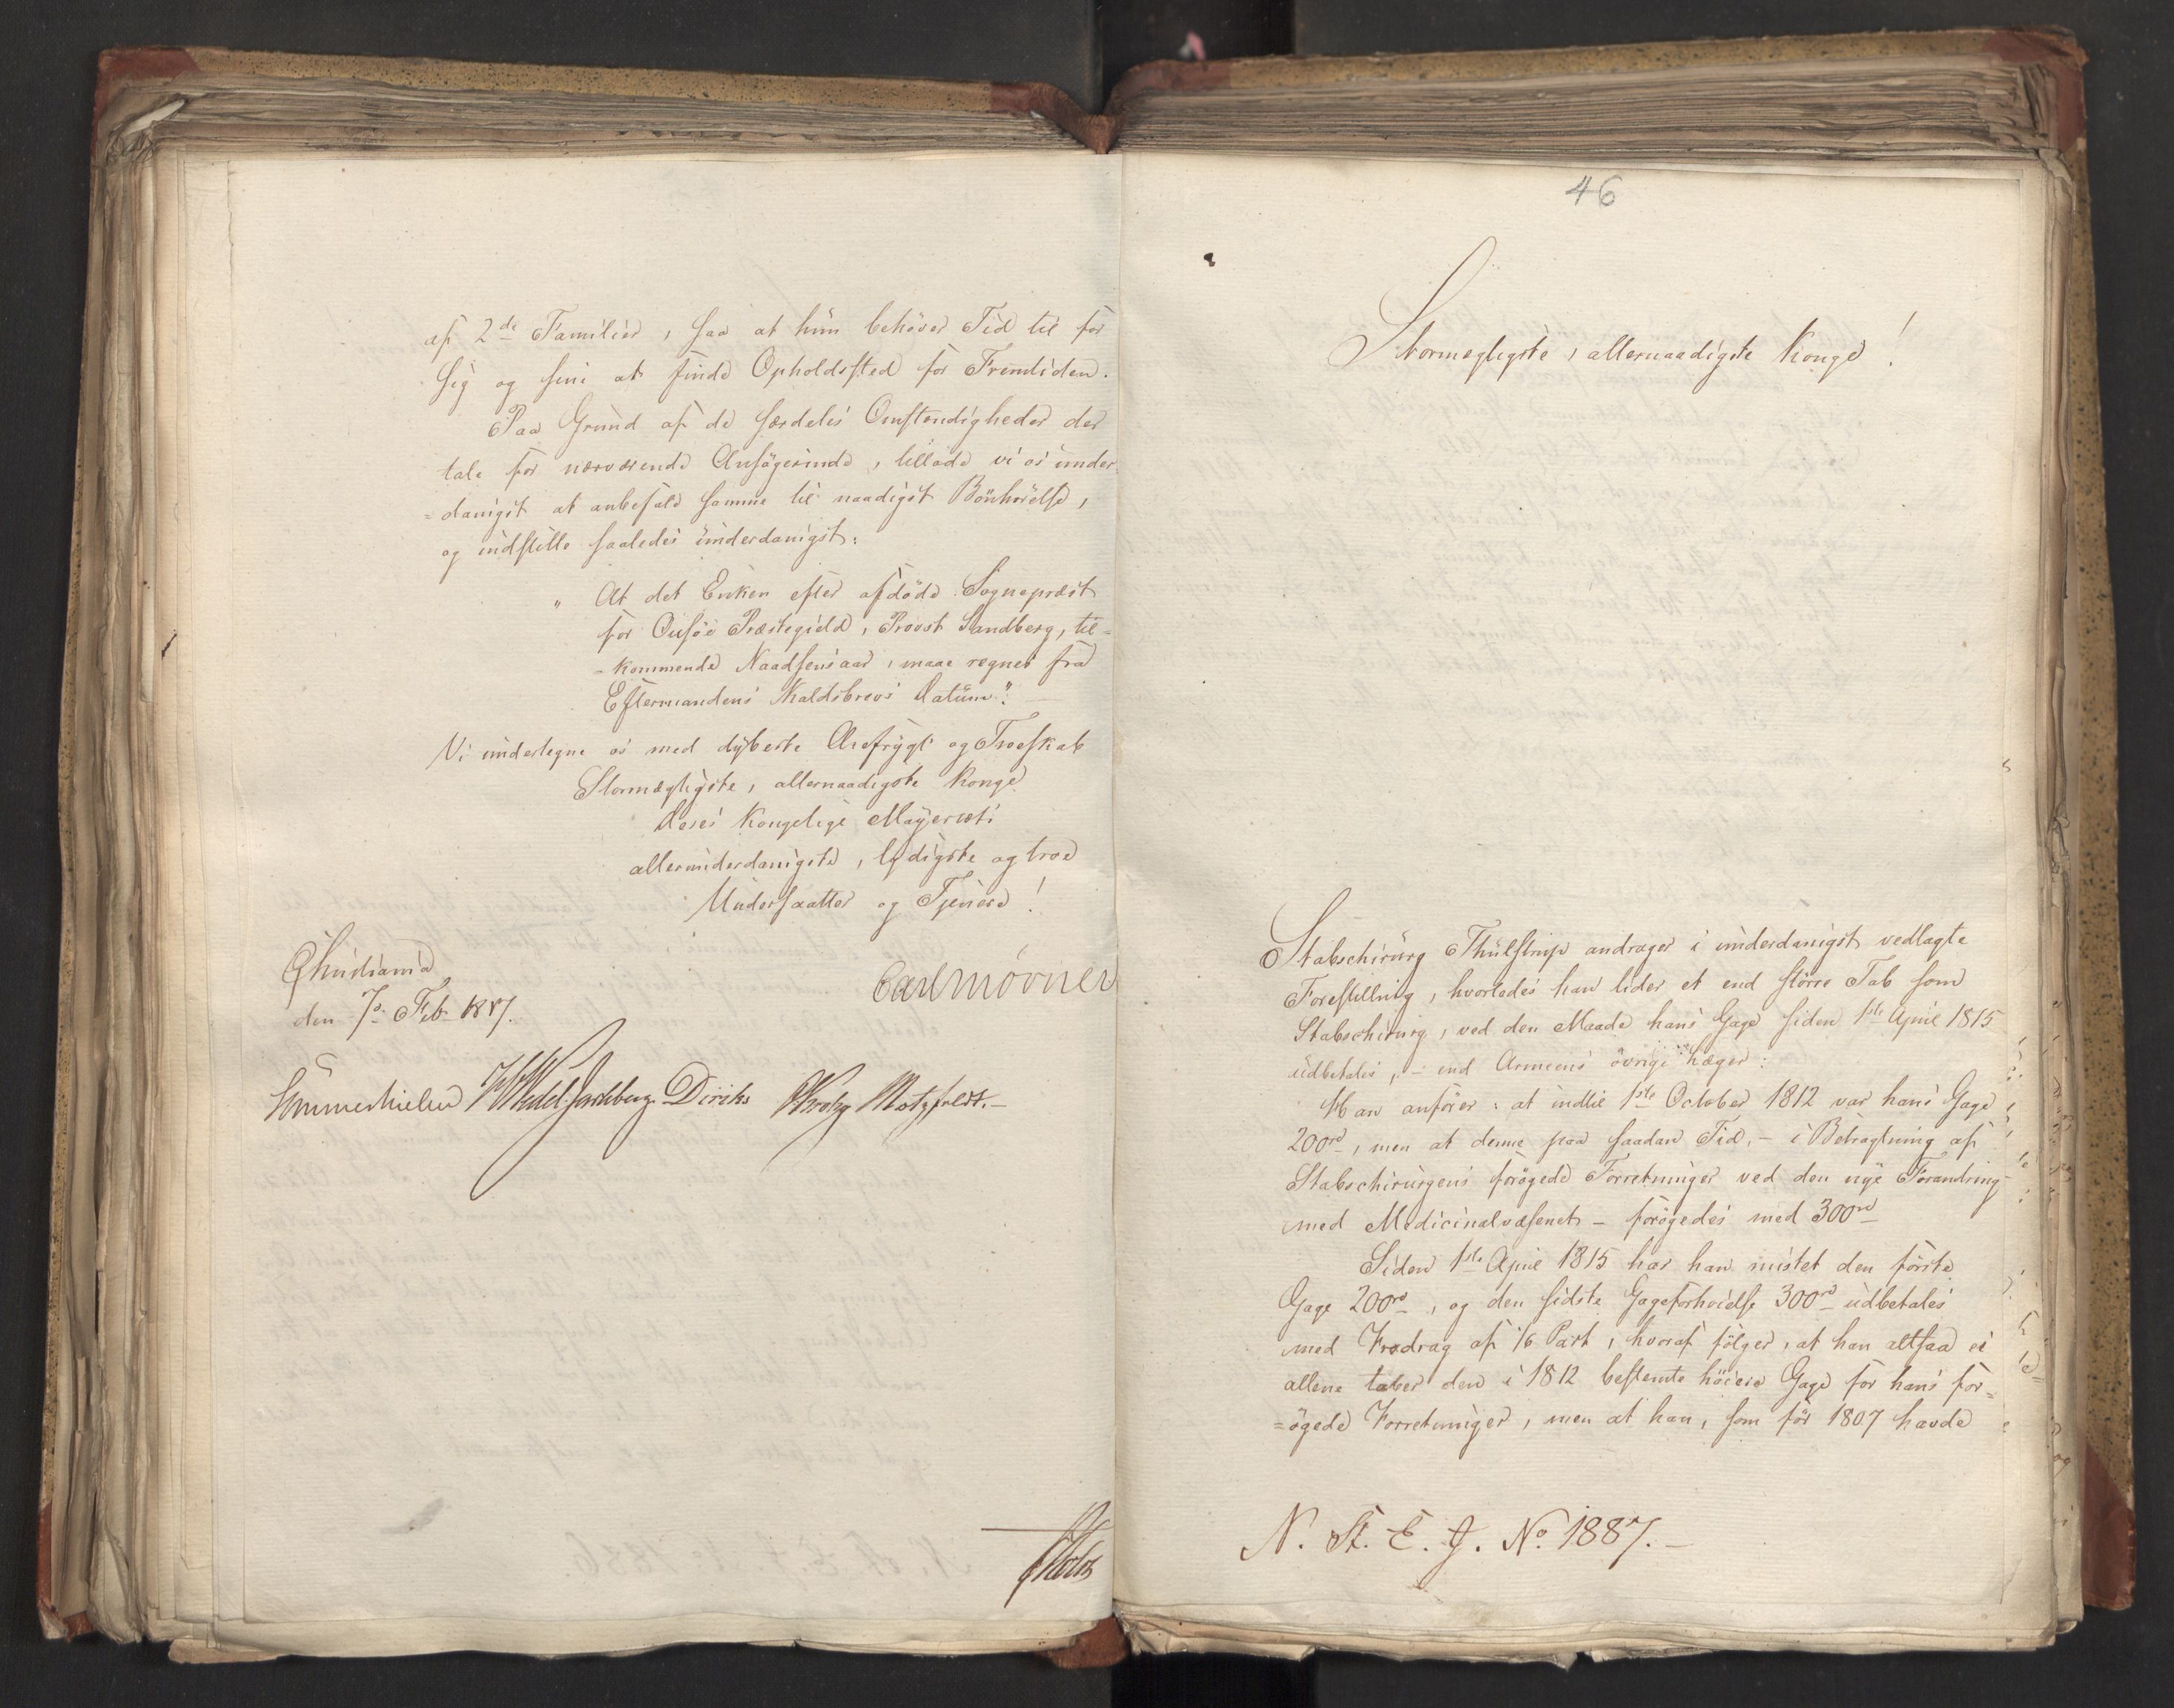 af 2de Familier, saa at hun behöver Tid til for
sig og sine at finde Opholdssted for Fremtiden.
Paa Grund af de særdeles Omstendigheder der
tale for nærværende Ansögerinde, tillade vi os under-
=danigst at anbefale samme til naadigst Bönhörelse,
og indstille saaledes underdanigst:
" At det Enken efter afdöde Sognepræst
for Ousöe Præstegield, Provst Sandberg, til=
=kommende Naadsensaar, maae regnes fra
Eftermandens Kaldsbrevs Datum".
Vi undertegne os med dybeste Ærefrygt og Troeskab
Stormægtigste, allernaadigste Konge
Deres Kongelige Mayestæts
allerunderdanigste, lydigste og troe
Undersaatter og Tjenere!
Christiania
den 7de Feb. 1817.
Carl Mörner
Sommerhielm Wedel Jarlsberg Diriks Krohg Motzfeldt.-
Holst
46
Stormægtigste, allernaadigste Konge!
Stabschirurg Thulstrup andrager i underdanigst vedlagte
Forestilling, hvorledes han lider et end större Tab som
Stabschirurg, ved den Maade hans Gage siden 1ste April 1815
udbetales, - end Armeens övrige Læger:
Han anförer: at indtil 1ste October 1812 var hans Gage
200rd, men at denne paa saadan Tid, - i Betragtning af
Stabschirurgens forögede Forretninger ved den nye Forandring
med Medicinalvæsenet - forögedes med 300rd
Siden 1ste April 1815 har han mistet den förste
Gage 200rd, og den sidste Gageforhöielse 300rd udbetales
med Fradrag af 1/6 Part, hvoraf fölger, at han altsaa ei
allene taber den i 1812 bestemte höiere Gage for hans for=
=ögede Forretninger, men at han, som för 1807 havde
N. St. E. J. No. 1887.-